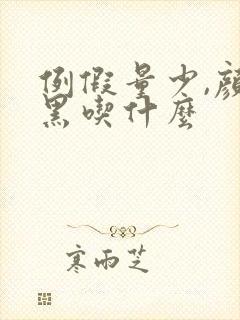 例假量少,顏
黑喫什麼
寒雨芝